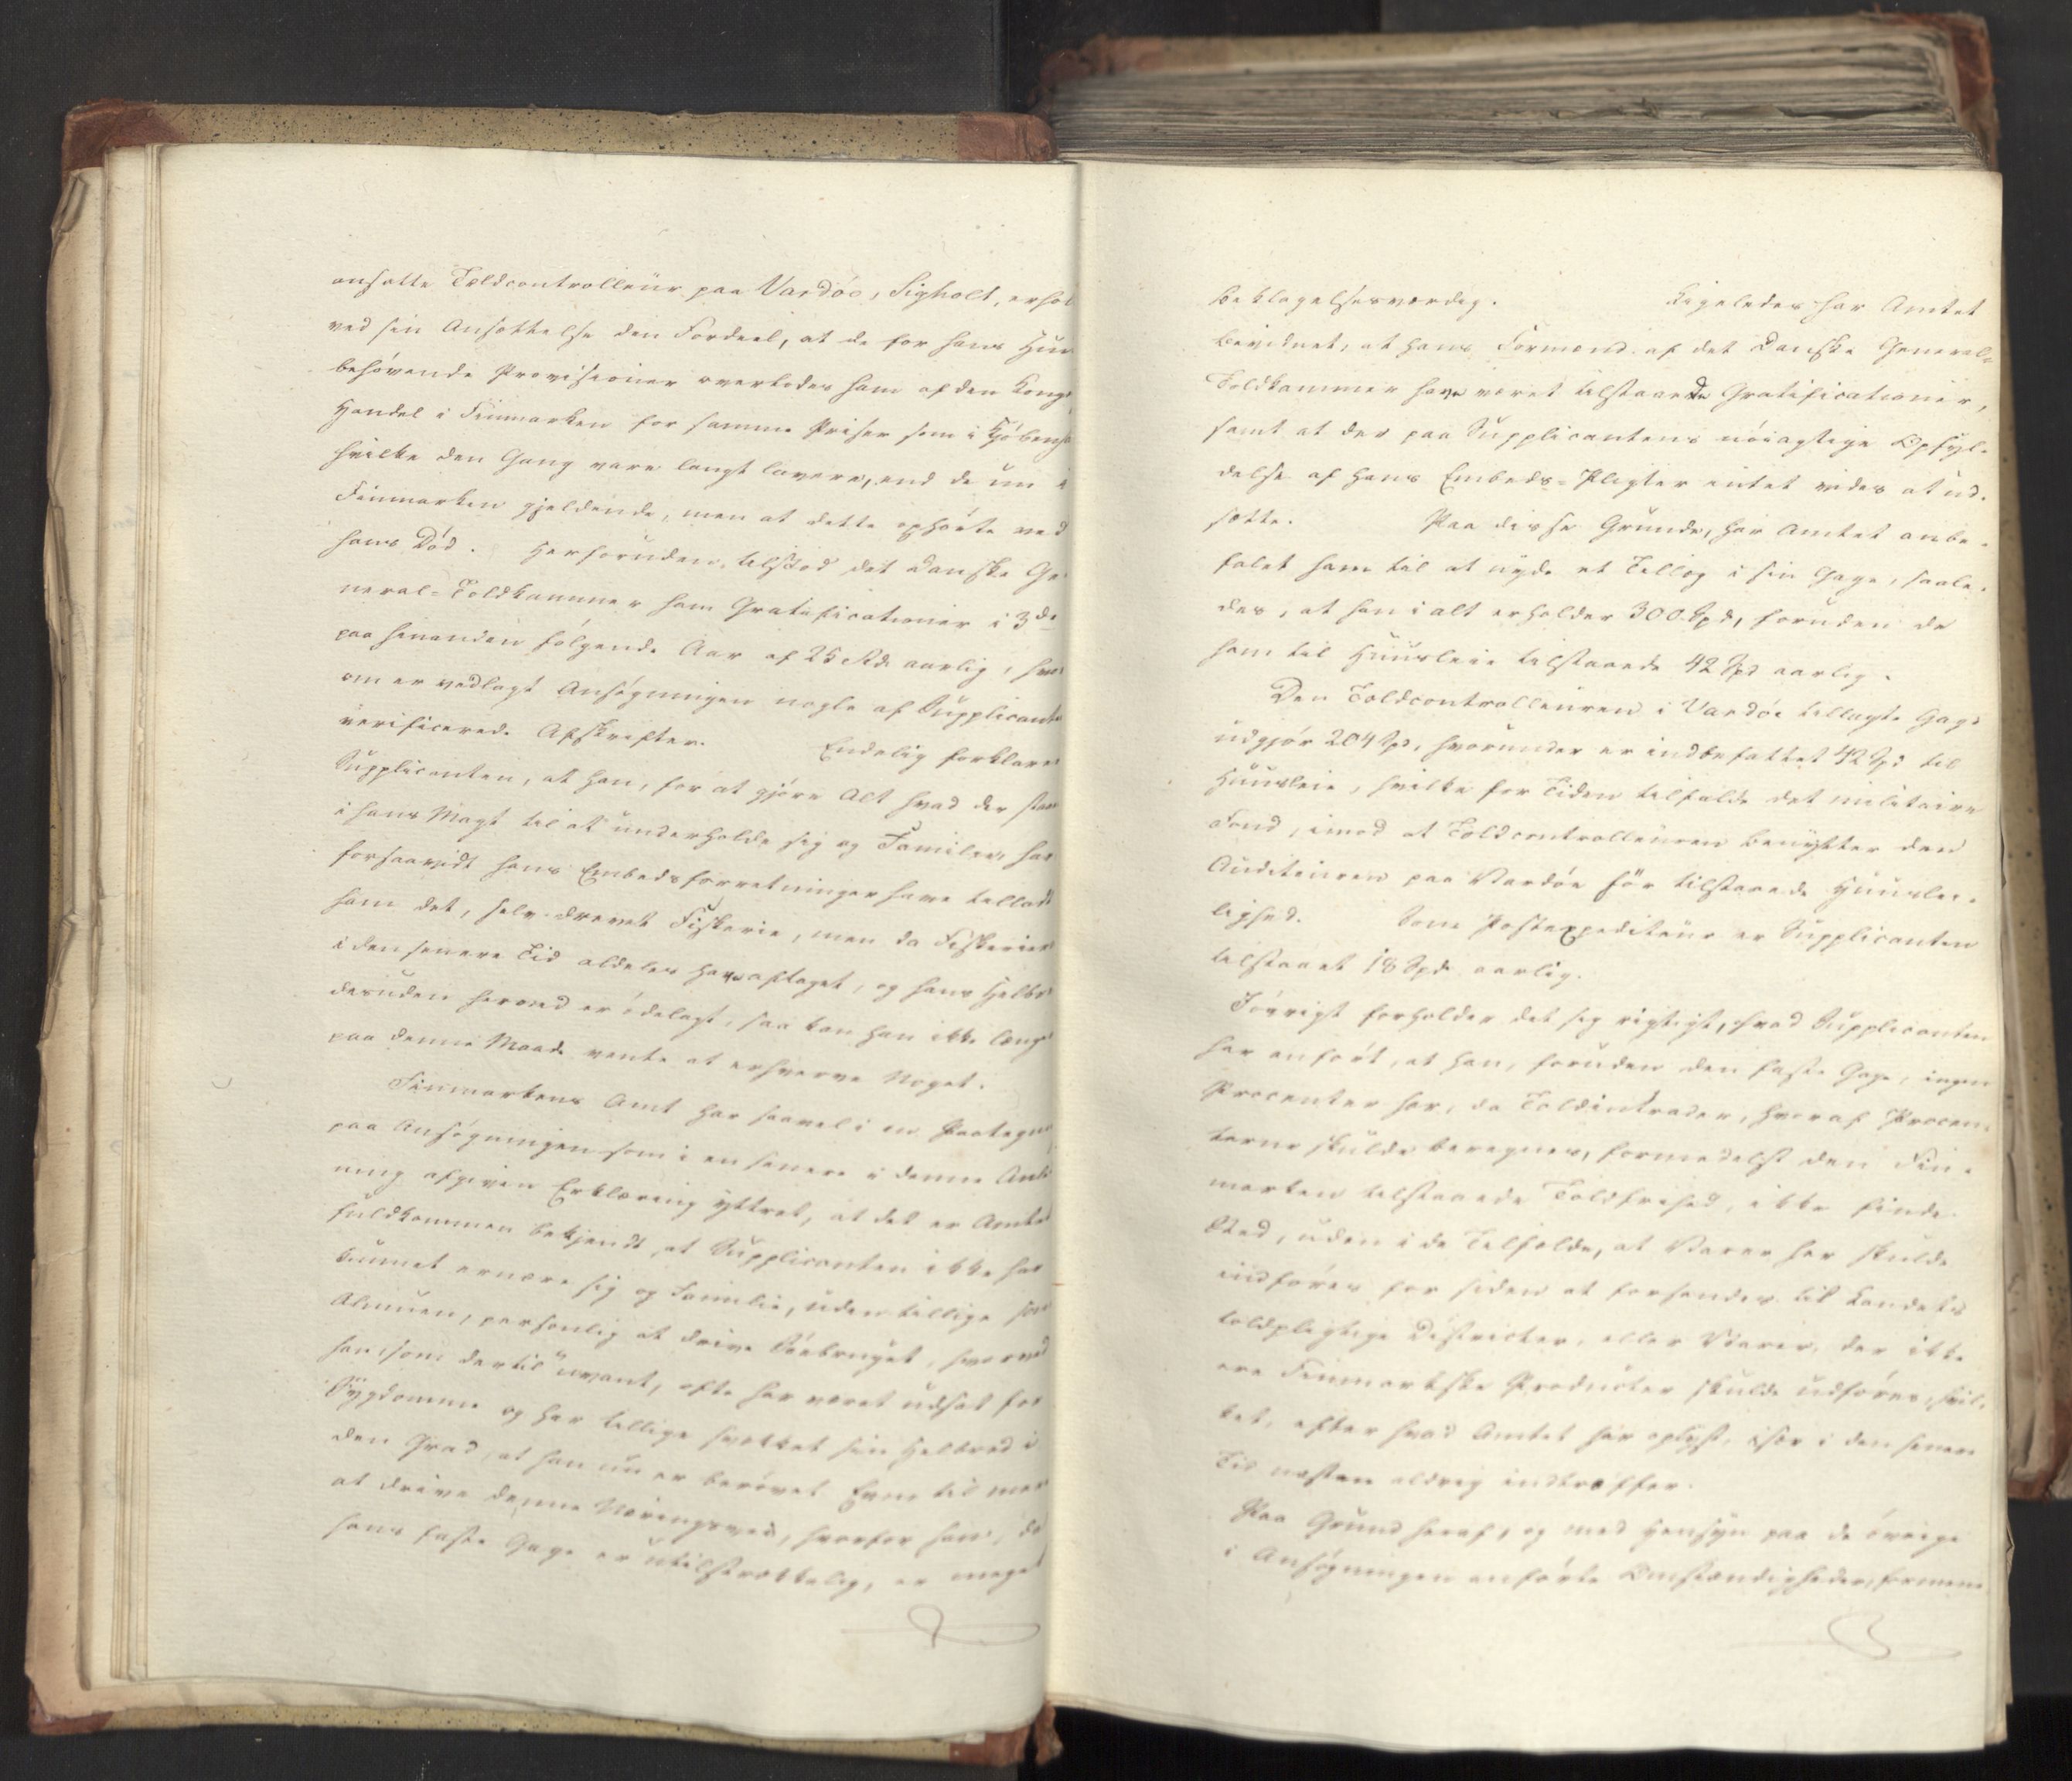 ansatte Toldcontrolleur paa Vardöe, Sigholt, erhol
ved sin Ansættelse den Fordeel, at de for hans Huus
behövende Provisioner overlodes ham af den Kongl
Handel i Finmarken for samme Priser som i Kjöbenh
hvilke den Gang vare langt lavere, end de nu i
Finmarken gjeldende, men at dette ophörte ved
hans Död. Herforuden tilstod det danske Ge-
neral-Toldkammer ham Gratificationer i 3de
paa hinanden fölgende Aar af 25 Rd. aarlig, hvor
om er vedlagt Ansögningen nogle af Supplicante
verificerede Afskrifter. Endelig forklarer
Supplicanten, at han, for at gjöre Alt hvad der staar
i hans Magt til at underholde sig og Familie, har
forsaavidt hans Embedsforretninger have tilladt
ham det, selv drevet Fiskerie, men da Fiskeriet
i den senere Tid aldeles have aftaget, og hans Helbr
desuden herved er ödelagt, saa kan han ikke længer
paa denne Maade vente at erhverve Noget.
Finmarkens Amt har saavel i en Paategn
paa Ansögningen som i en senere i denne Anled
ning afgiven Erklæring yttret, at det er Amtet
fuldkommen bekjendt, at Supplicanten ikke har
kunnet ernære sig og Familie, uden tillige som
Almuen, personlig at drive Söebruget, hvorved
han, som dertil uvant, ofte har været udsat for
Sygdomme og har tillige svækket sin Helbred i
den Grad, at han nu er berövet Evne til mere
at drive denne Næringsvei, hvorfor han, da
hans faste Gage er utilstrækkelig, er meget
beklagelsesværdig. Ligeledes har Amtet
bevidnet, at hans Formænd af det danske General-
Toldkammer have været tilstaaede Gratificationer,
samt at der paa Supplicantens nöiagtige Opfyl-
delse af hans Embeds-Pligter intet vides at ud-
sætte. Paa disse Grunde, har Amtet anbe-
falet ham til at nyde et Tillæg i sin Gage, saale-
des, at han i alt erholder 300 Spd, foruden de
ham til Huusleie tilstaaede 42 Spd aarlig.
Den Toldcontrolleuren i Vardöe tillagte Gage
udgjör 204 Spd, hvorunder er indbefattet 42 Spd til
Huusleie, hvilke for Tiden tilfalde det militaire
Fond, imod at Toldcontrolleuren benytter den
Auditeuren paa Vardöe för tilstaaede Huuslei-
lighed. Som Postexpediteur er Supplicanten
tilstaaet 18 Spd. aarlig.
Iövrigt forholder det sig rigtigt, hvad Supplicanten
har anfört, at han, foruden den faste Gage, ingen
Procenter har, da Toldintrader, hvoraf Procen-
terne skulde beregnes, formedelst den Fin-
marken tilstaaede Toldfrihed, ikke finde
Sted, uden i de Tilfælde, at Varer her skulde
indföres for siden at forsendes til Landets
toldpligtige Districter, eller Varer, der ikke
ere Finmarkske Producter skulde udföres, hvil-
ket, efter hvad Amtet har oplyst, især i den senere
Tid næsten aldrig indtræffer.
Paa Grund heraf, og med Hensyn paa de övrige
i Ansögningen anförte Omstændigheder, formene